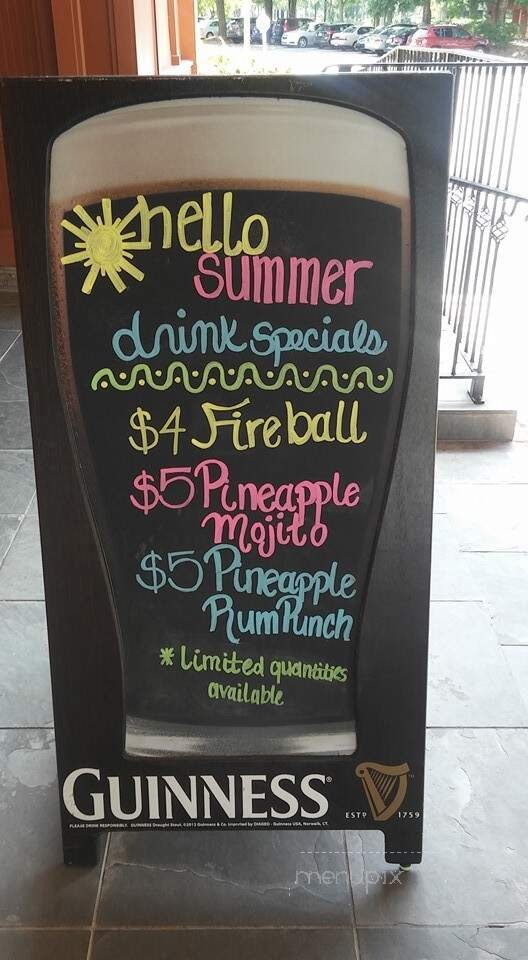 hello
summer
drink specials
$4 Fireball
$5 Pineapple
Mojito
$5 Pineapple
Rum Punch
* Limited quantities
available
GUINNESS®
ESTD 1759
PLEASE DRINK RESPONSIBLY. GUINNESS Draught Stout. ©2013 Guinness & Co. Imported by DIAGEO - Guinness USA, Norwalk, CT.
menupix